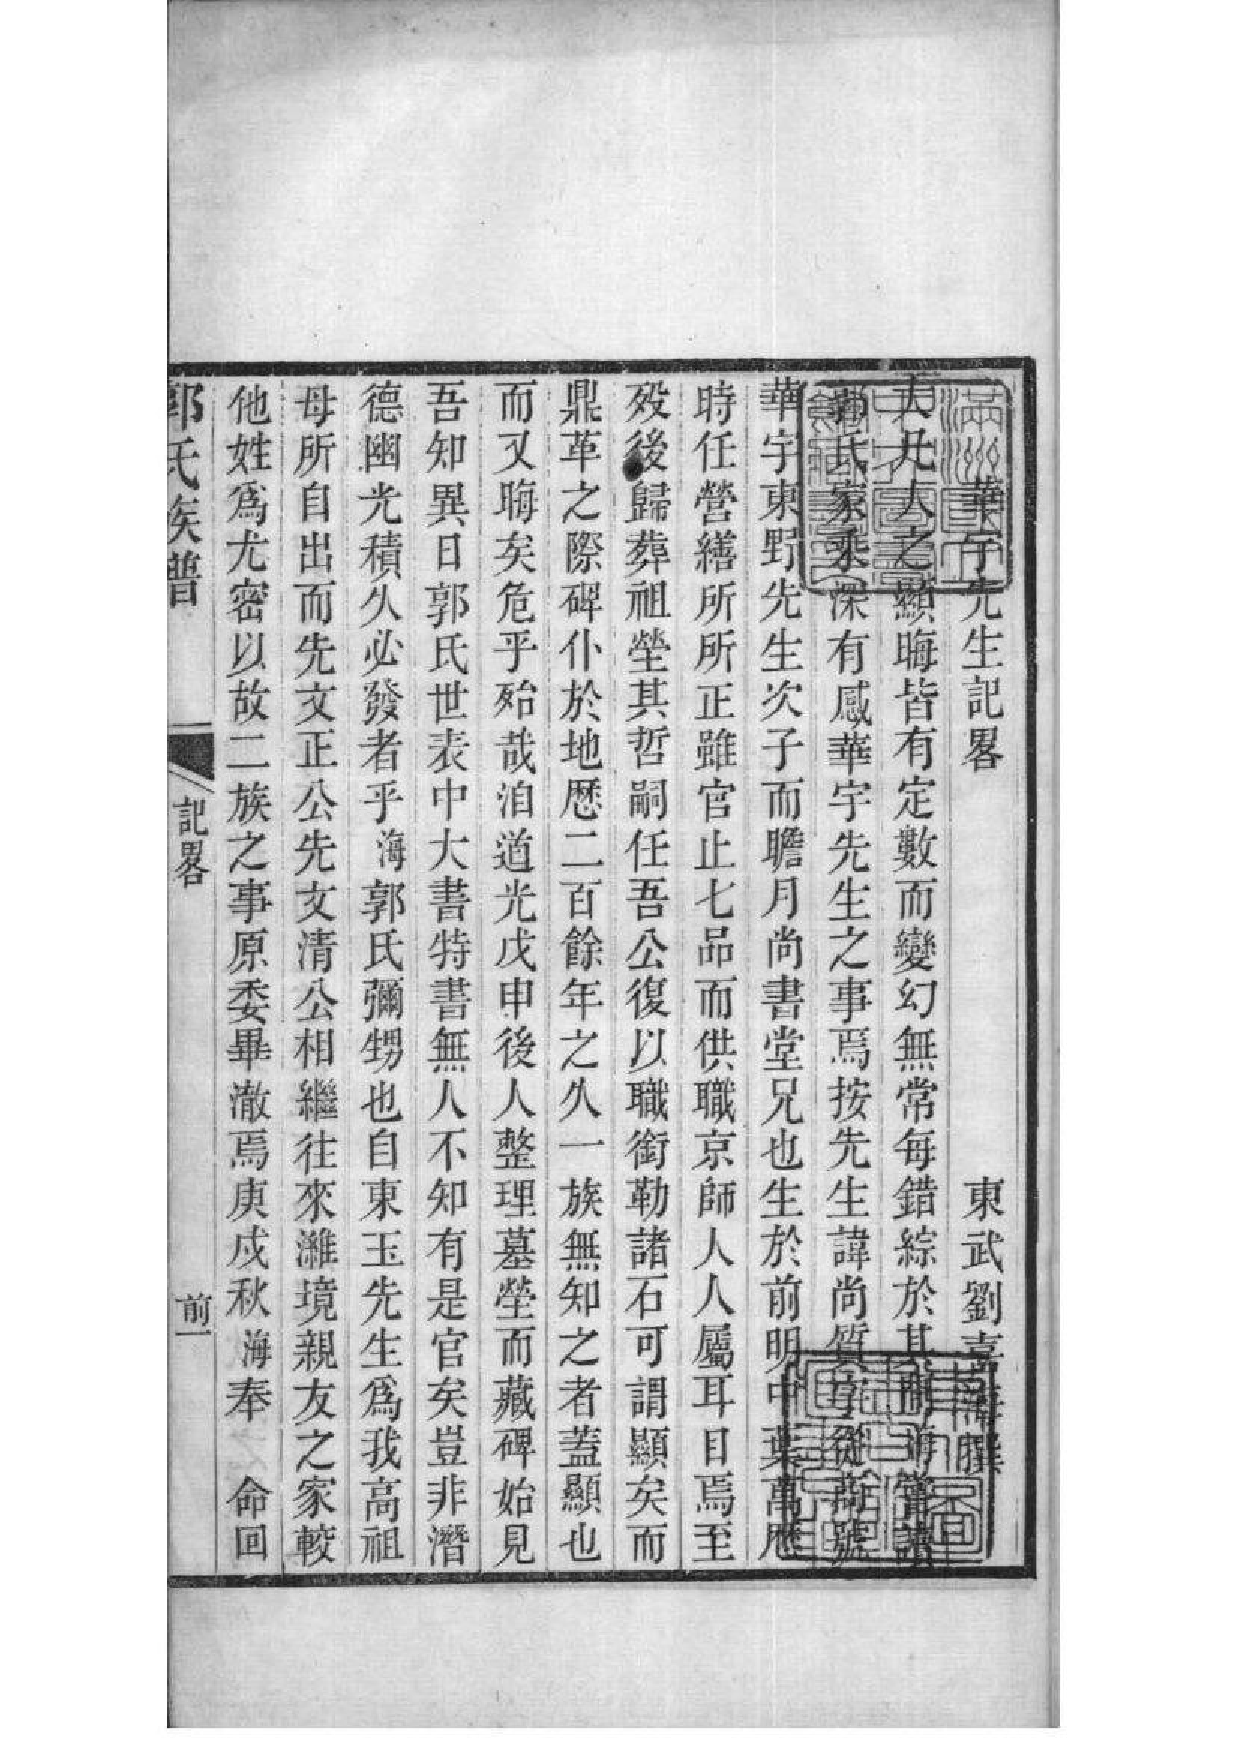 華宇先生記畧
東武劉喜海撰
大凡人之顯晦皆有定數而變幻無常每錯綜於其間海嘗讀
郭氏家乘深有感華宇先生之事焉按先生諱尚質字從商號
華宇東野先生次子而瞻月尚書堂兄也生於前明中葉萬歷
時任營繕所所正雖官止七品而供職京師人人屬耳目焉至
歿後歸葬祖塋其哲嗣任吾公復以職銜勒諸石可謂顯矣而
鼎革之際碑仆於地歷二百餘年之久一族無知之者蓋顯也
而又晦矣危乎殆哉洎道光戊申後人整理墓塋而藏碑始見
吾知異日郭氏世表中大書特書無人不知有是官矣豈非潛
德幽光積久必發者乎海郭氏彌甥也自東玉先生爲我高祖
母所自出而先文正公先文清公相繼往來濰境親友之家較
他姓爲尤密以故二族之事原委畢澈焉庚戌秋海奉　命回
郭氏族譜
記畧
前一